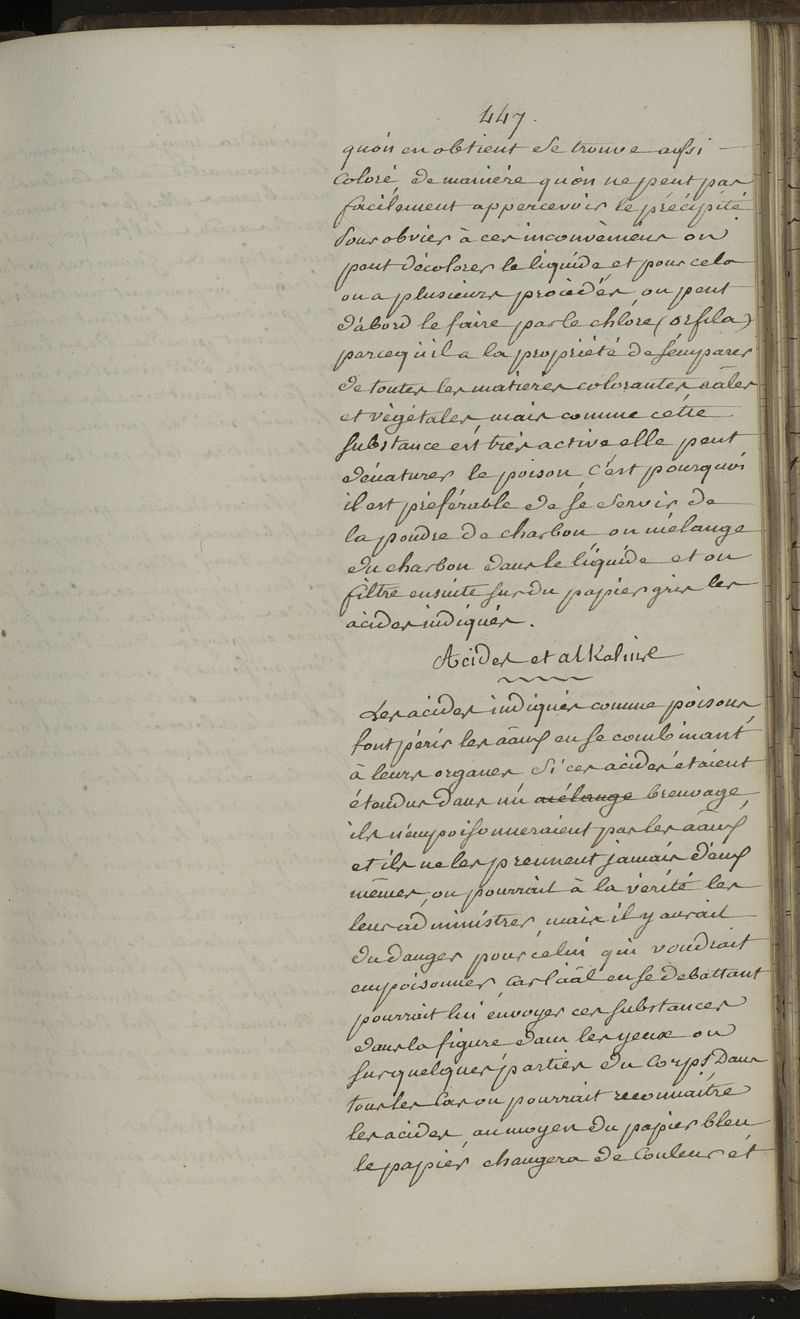 447.
qu'on en obtient se trouve aussi
coloré, de manière qu'on ne peut pas
facilement appercevoir le précipité
Pour obvier à ces inconvéniens on
peut décolorer le liquide, et pour cela
on a plusieurs procédés, on peut
d'abord le faire par le chlore (orfila)
parcequ'il a la propriété de s'emparer
de toutes les matieres colorantes aâles
et végétales, mais comme cette
substance est très active elle peut
dénaturer le poison, c'est pourquoi
il est préférable de se servir de
la poudre de charbon, on mélange
du charbon dans le liquide et on
filtre ensuite sur du papier gris les
acides indiqués.
Acides et alKalins
Les acides indiqués comme poisons,
font périr les aâux en se combinant
à leurs organes, si ces acides étaient
étendus dans un mélange breuvage,
ils n'empoisonneraient pas les aâux
et ils ne les prennent jamais d'eux
mêmes, on pourrait à la vérité les
leur administrer, mais il y aurait
du danger pour celui qui voudrait
empoisonner, car l'aâl en se debattant
pourrait lui envoyer ces substances
dans la figure, dans les yeux ou
sur quelques parties du Corps, Dans
tous les Cas on pourrait reconnaître
les acides, au moyen du papier bleu
le papier changera de Couleur et